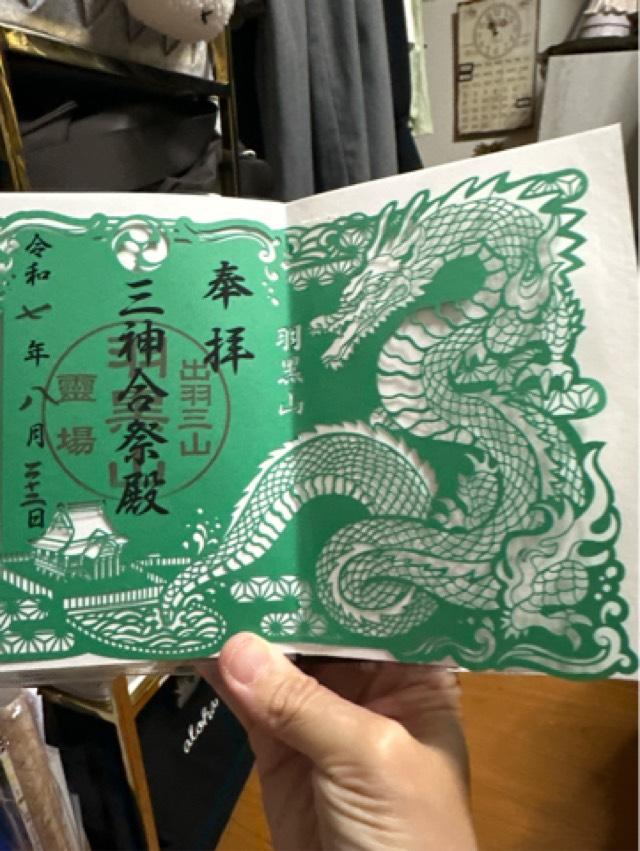 羽黒山
奉拝
出羽三山
三神合祭殿
羽黒山
靈場
令和七年八月
日
aloha